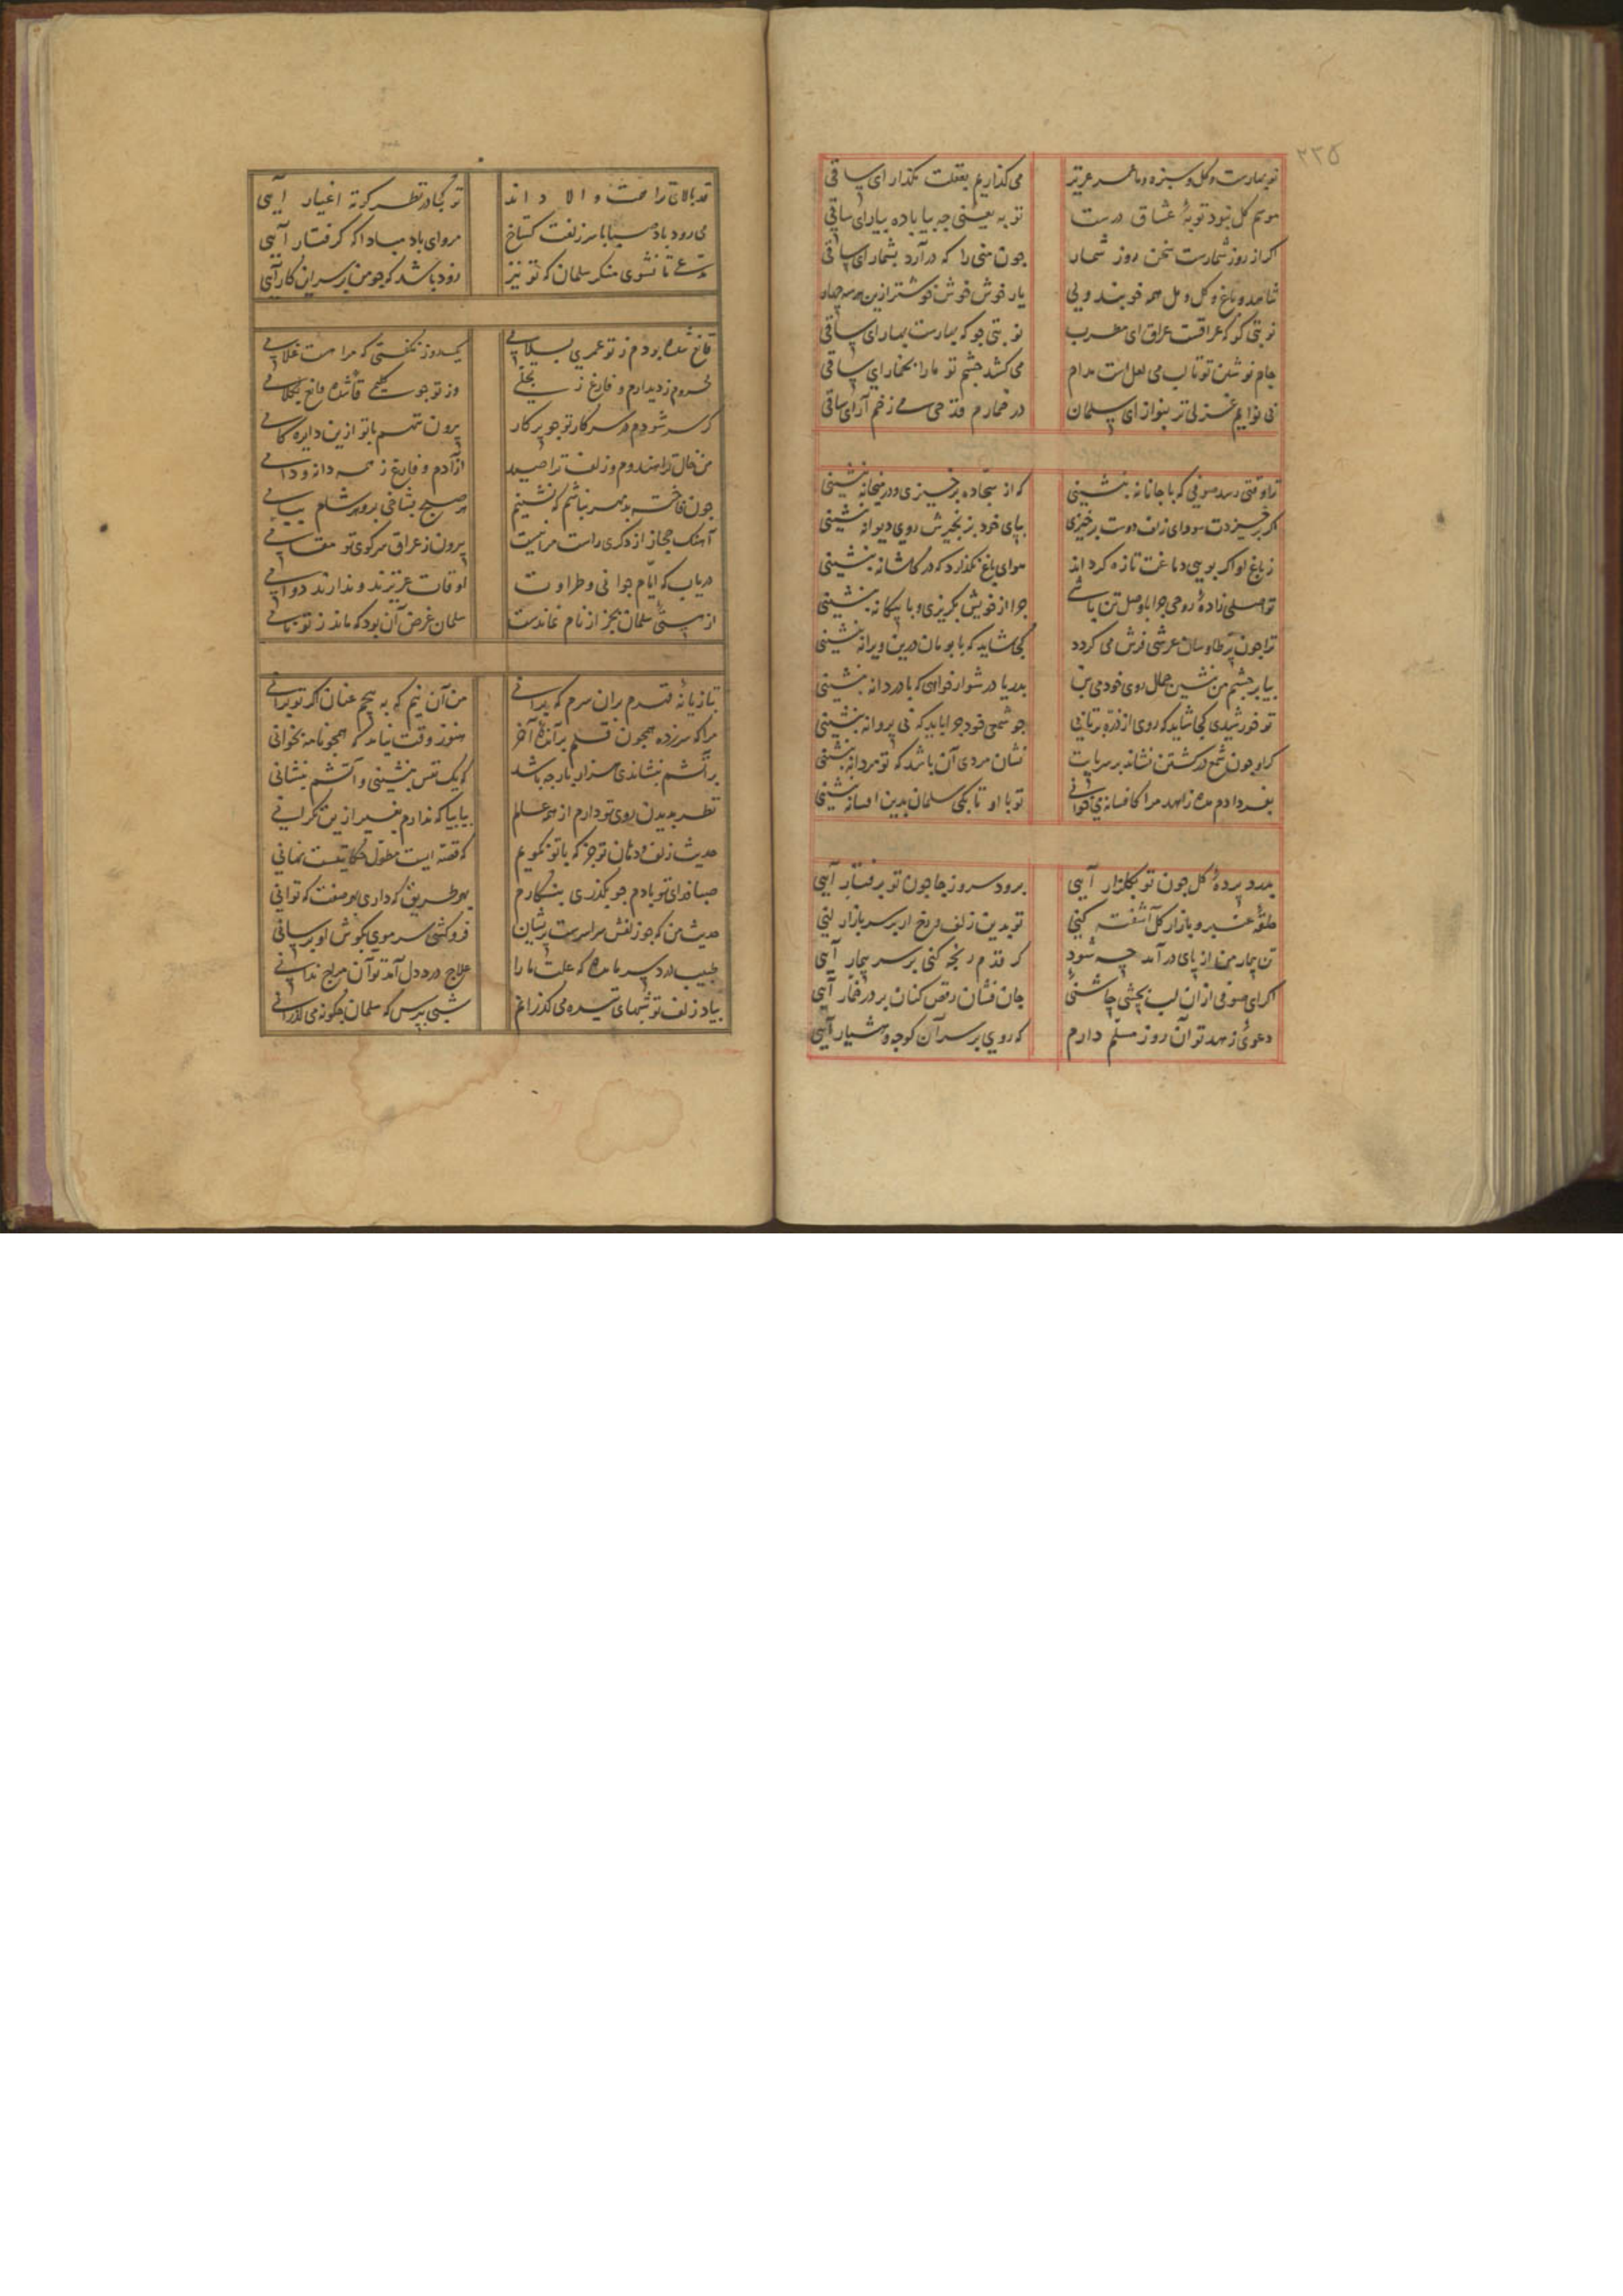 ۲۳۵
نوبهارست و گل و سبزه و ما عمر عزیز می گذاریم بغفلت مگذار ای ساقی
موسم گل نبود توبهٔ عشاق درست توبه یعنی چه بیا باده بیار ای ساقی
اگر از روز شمارست سخن روز شمار چون منی را که درآرد بشمار ای ساقی
شاهد و باغ و گل و مل همه خوبند ولی یار خوش خوش خوشتر ازین هر سه چهار
نوبتی گو که عراقست عراق ای مطرب نوبتی جو که بهارست بهار ای ساقی
جام نوشین تو تا لب می لعل است مدام می کشد چشم تو ما را بخمار ای ساقی
بی نوایم غزلی تر بنواز ای سلمان در خمارم قدحی می زخم آر ای ساقی
ترا وقتی رسد صوفی که با جانانه بنشینی که از سجاده برخیزی و در میخانه بنشینی
اگر برخیزدت سودای زلف دوست برخیزی بپای خود بزنجیرش روی دیوانه بنشینی
ز باغ او اگر بویی دماغت تازه گرداند هوای باغ نگذارد که در کاشانه بنشینی
تو اصلی زادهٔ روحی چرا با وصل تن باشی چرا از خویش بگریزی و با بیگانه بنشینی
ترا چون پر طاوسان عرشی فرش می گردد کجا شاید که با بومان درین ویرانه بنشینی
بیا بر چشم من بنشین جمال روی خود می بین بدریا در شوار خواهی که با دردانه بنشینی
تو خورشیدی کجا شاید که روی از ذره برتابی چو شمعی خود چرا باید که بی پروانه بنشینی
گر او چون شمع در کشتن نشاند بر سر پایت نشان مردی آن باشد که تو مردانه بنشینی
بفردا دم مده زاهد مرا کافسانه می خوانی تو با او تا بکی سلمان بدین افسانه بنشینی
بدرد پردهٔ گل چون تو بگلزار آیی برود سرو ز جا چون تو برفتار آیی
حلقهٔ عنبر و بازار گل آشفته کنی تو بدین زلف و رخ ار بر سر بازار آیی
تن بیمار من از پای درآمد چه شود گر قدم رنجه کنی بر سر بیمار آیی
اگر ای صوفی از آن لب بچشی چاشنئی جان فشان رقص کنان بر در خمار آیی
دعوئ زهد تو آن روز مسلم دارم که روی بر سر آن کوچه و هشیار آیی
قد بالای ترا والا داند تو کجا در نظر کوته اغیار آیی
می رود باد صبا با سر زلفت گستاخ مرو ای باد مبادا که گرفتار آیی
تا نشوی منکر سلمان که تو نیز زود باشد که چو من بر سر این کار آیی
قانع شده بودم ز تو عمری بسلامی یکروز نگفتی که مرا هست غلامی
محروم ز دیدارم و فارغ ز وز تو چو قانع بکلامی
گر سر شودم در سر کار تو چو پرگار بیرون ننهم با تو ازین دایره گامی
من خال ترا هندوم و زلف ترا صید آزادم و فارغ ز همه دانه و دامی
چون فاخته بدمهر نباشم که نشینم هر صبح بشاخی بروم شام ببامی
آهنگ حجاز از دگری راست مرا نیست بیرون ز عراق سر کوی تو مقامی
دریاب که ایام جوانی و طراوت اوقات عزیزند و ندارند دوامی
از هستئ سلمان بجز از نام نماندست سلمان غرض آن بود که ماند ز تو نامی
بتازیانه قدم بران سرم که برانی من آن نیم که به هیچم عنان اگر تو برانی
مرا که سرزده همچون قلم آخر هنوز وقت نیامد که همچو نامه بخوانی
بر آتشم بنشاندی هزار بار چه باشد که یک نفس بنشینی و آتشم بنشانی
نظر بدیدن روی تو دارم از همه عالم بیا بیا که ندارم بغیر ازین نگرانی
حدیث زلف و دهان تو جز که با تو نگویم که قصه ایست مطول حکایتیست نهانی
صبا فدای تو بادم چو بگذری بنگارم بهر طریق که داری بهر صفت که توانی
حدیث من که چو زلفش سراسرست پریشان فروکشی سر مویی بگوش او برسانی
طبیب درد سر ما مده که علت ما را علاج درد دل آمد تو آن علاج ندانی
بیاد زلف تو شبهای تیره می گذرانم شبی بپرس که سلمان چگونه می گذرانی